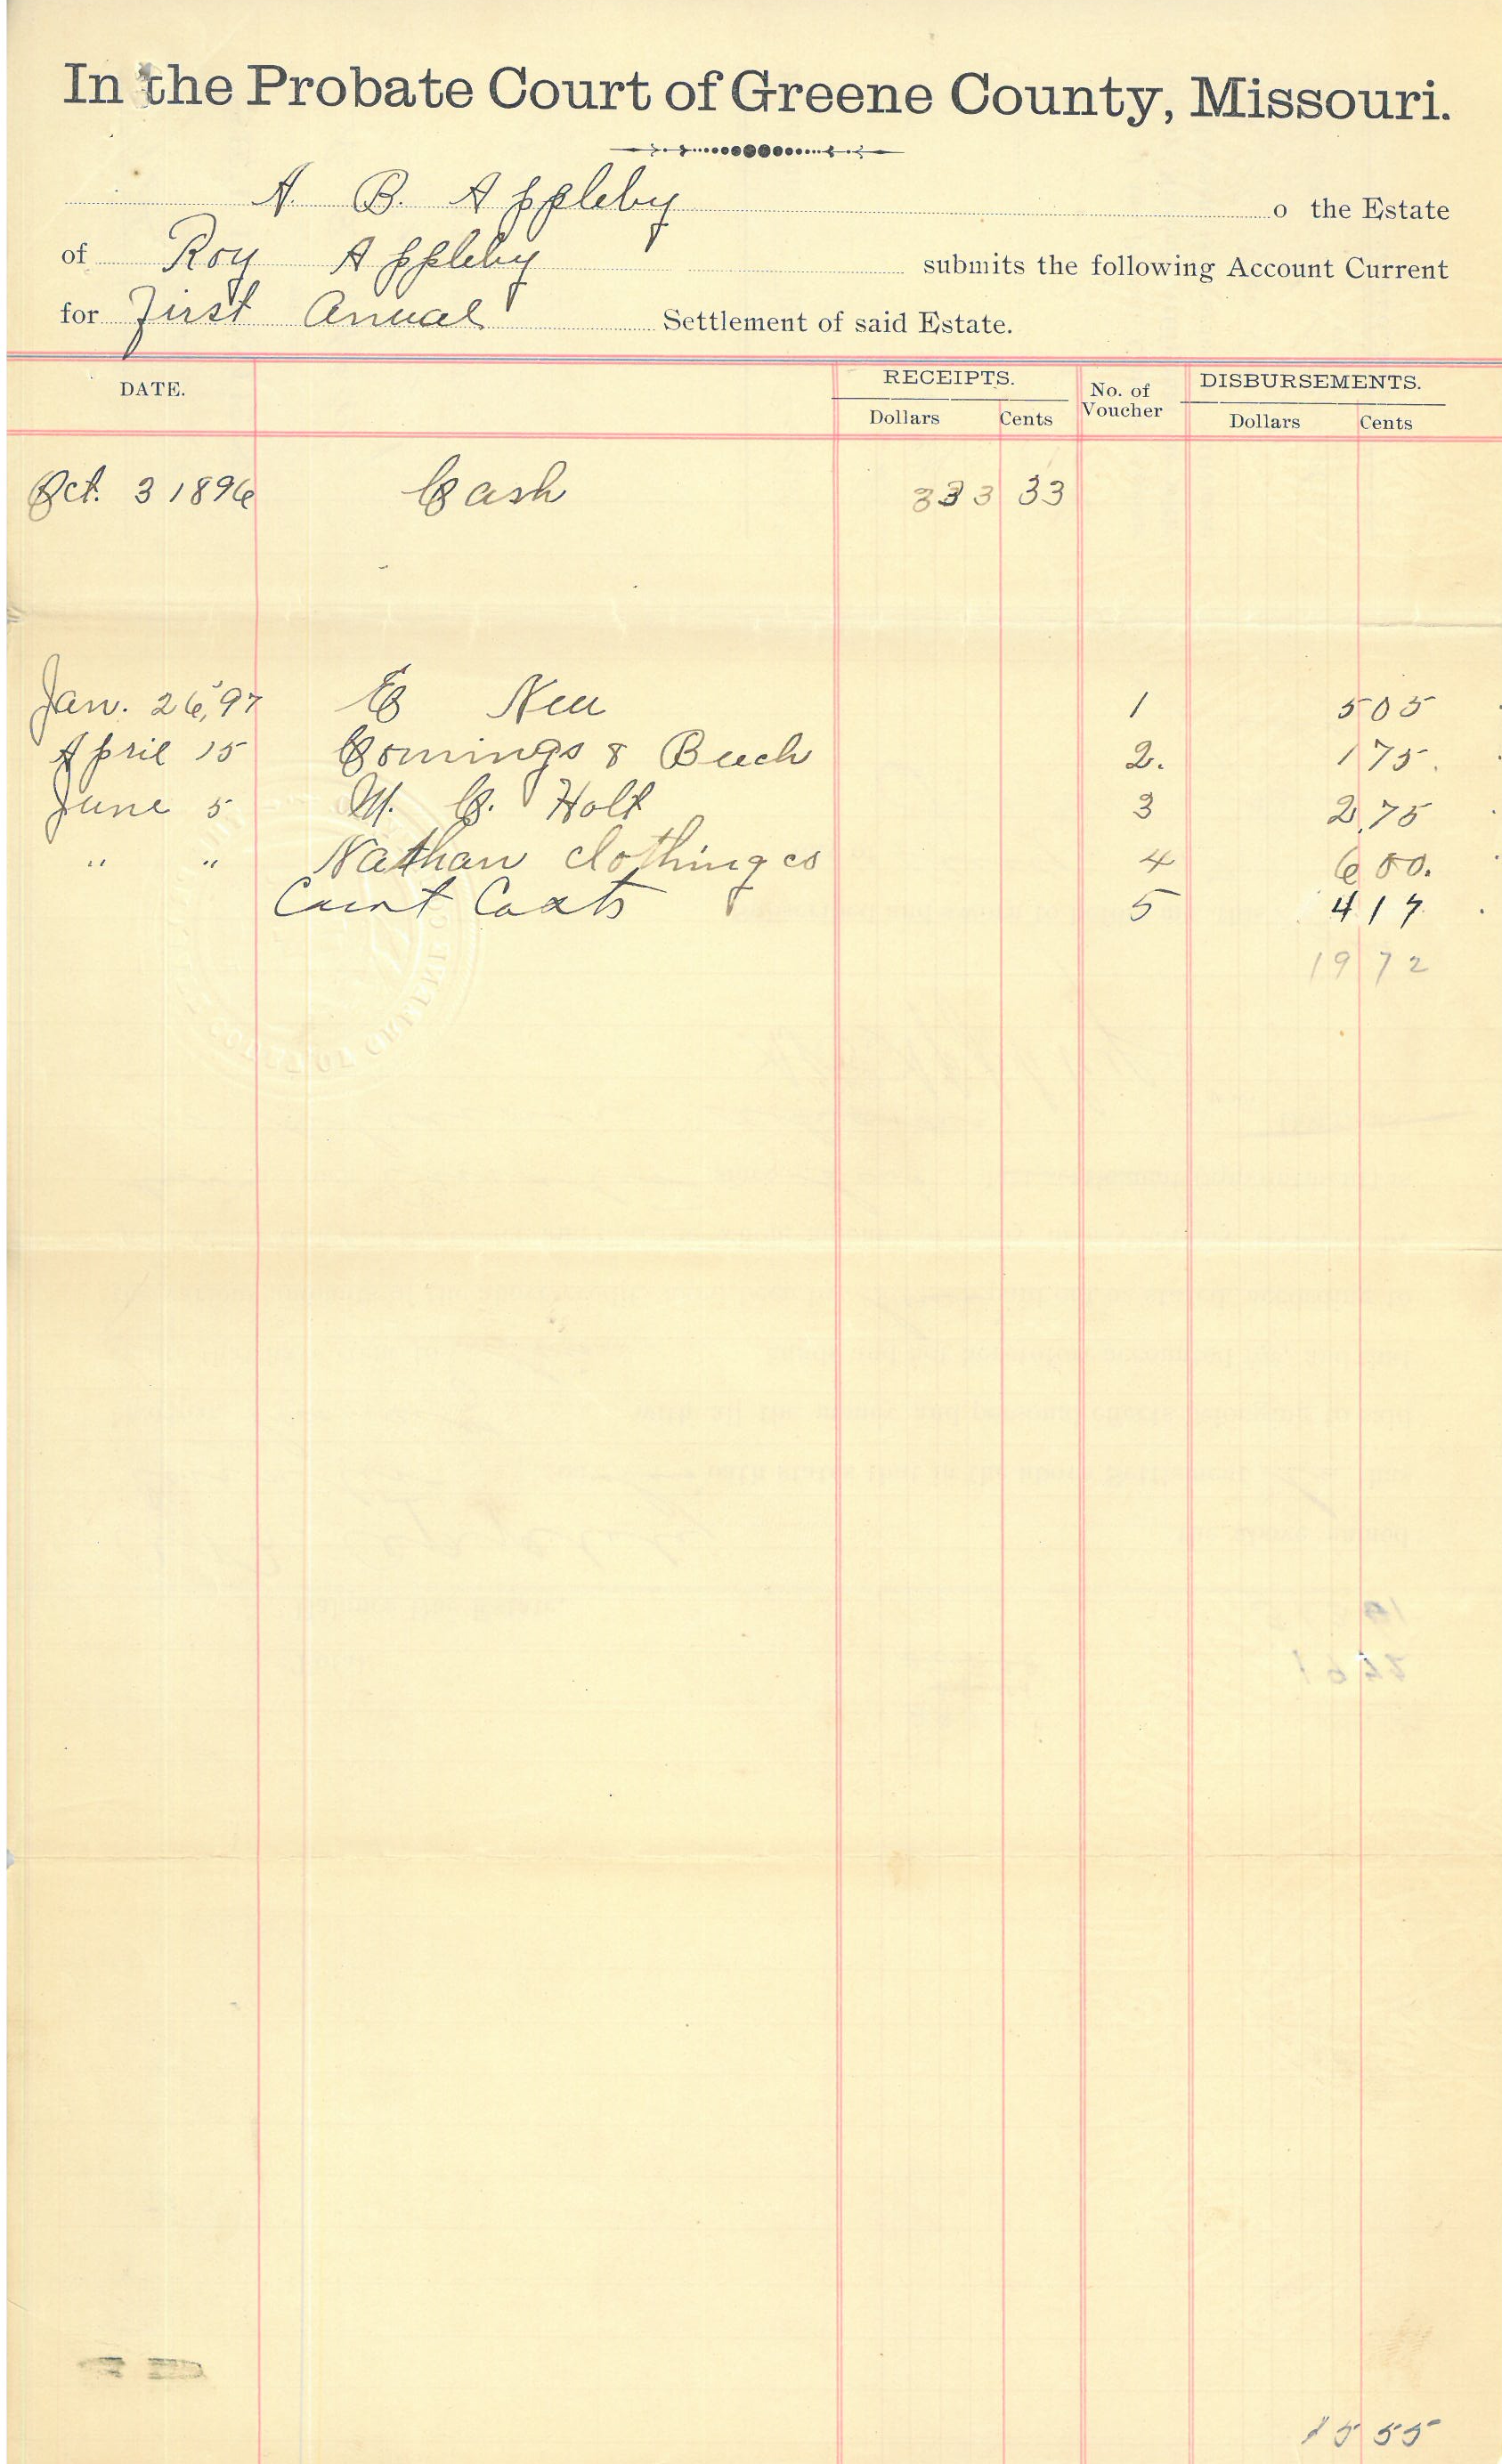 In the Probate Court of Greene County, Missouri.
A. B. Appleby o the Estate
of Roy Appleby submits the following Account Current
for First Anual Settlement of said Estate.
DATE. RECEIPTS. No. of Voucher DISBURSEMENTS.
Dollars Cents Dollars Cents
Oct. 3 1896 Cash 333 33
Jan. 26, 97 E Neu 1 5 05
April 15 Comings & Buch 2. 1 75.
June 5 M. C. Holt 3 2.75
" " Nathan clothing co 4 6 00.
Court Costs 5 4 17
19 72
15 55